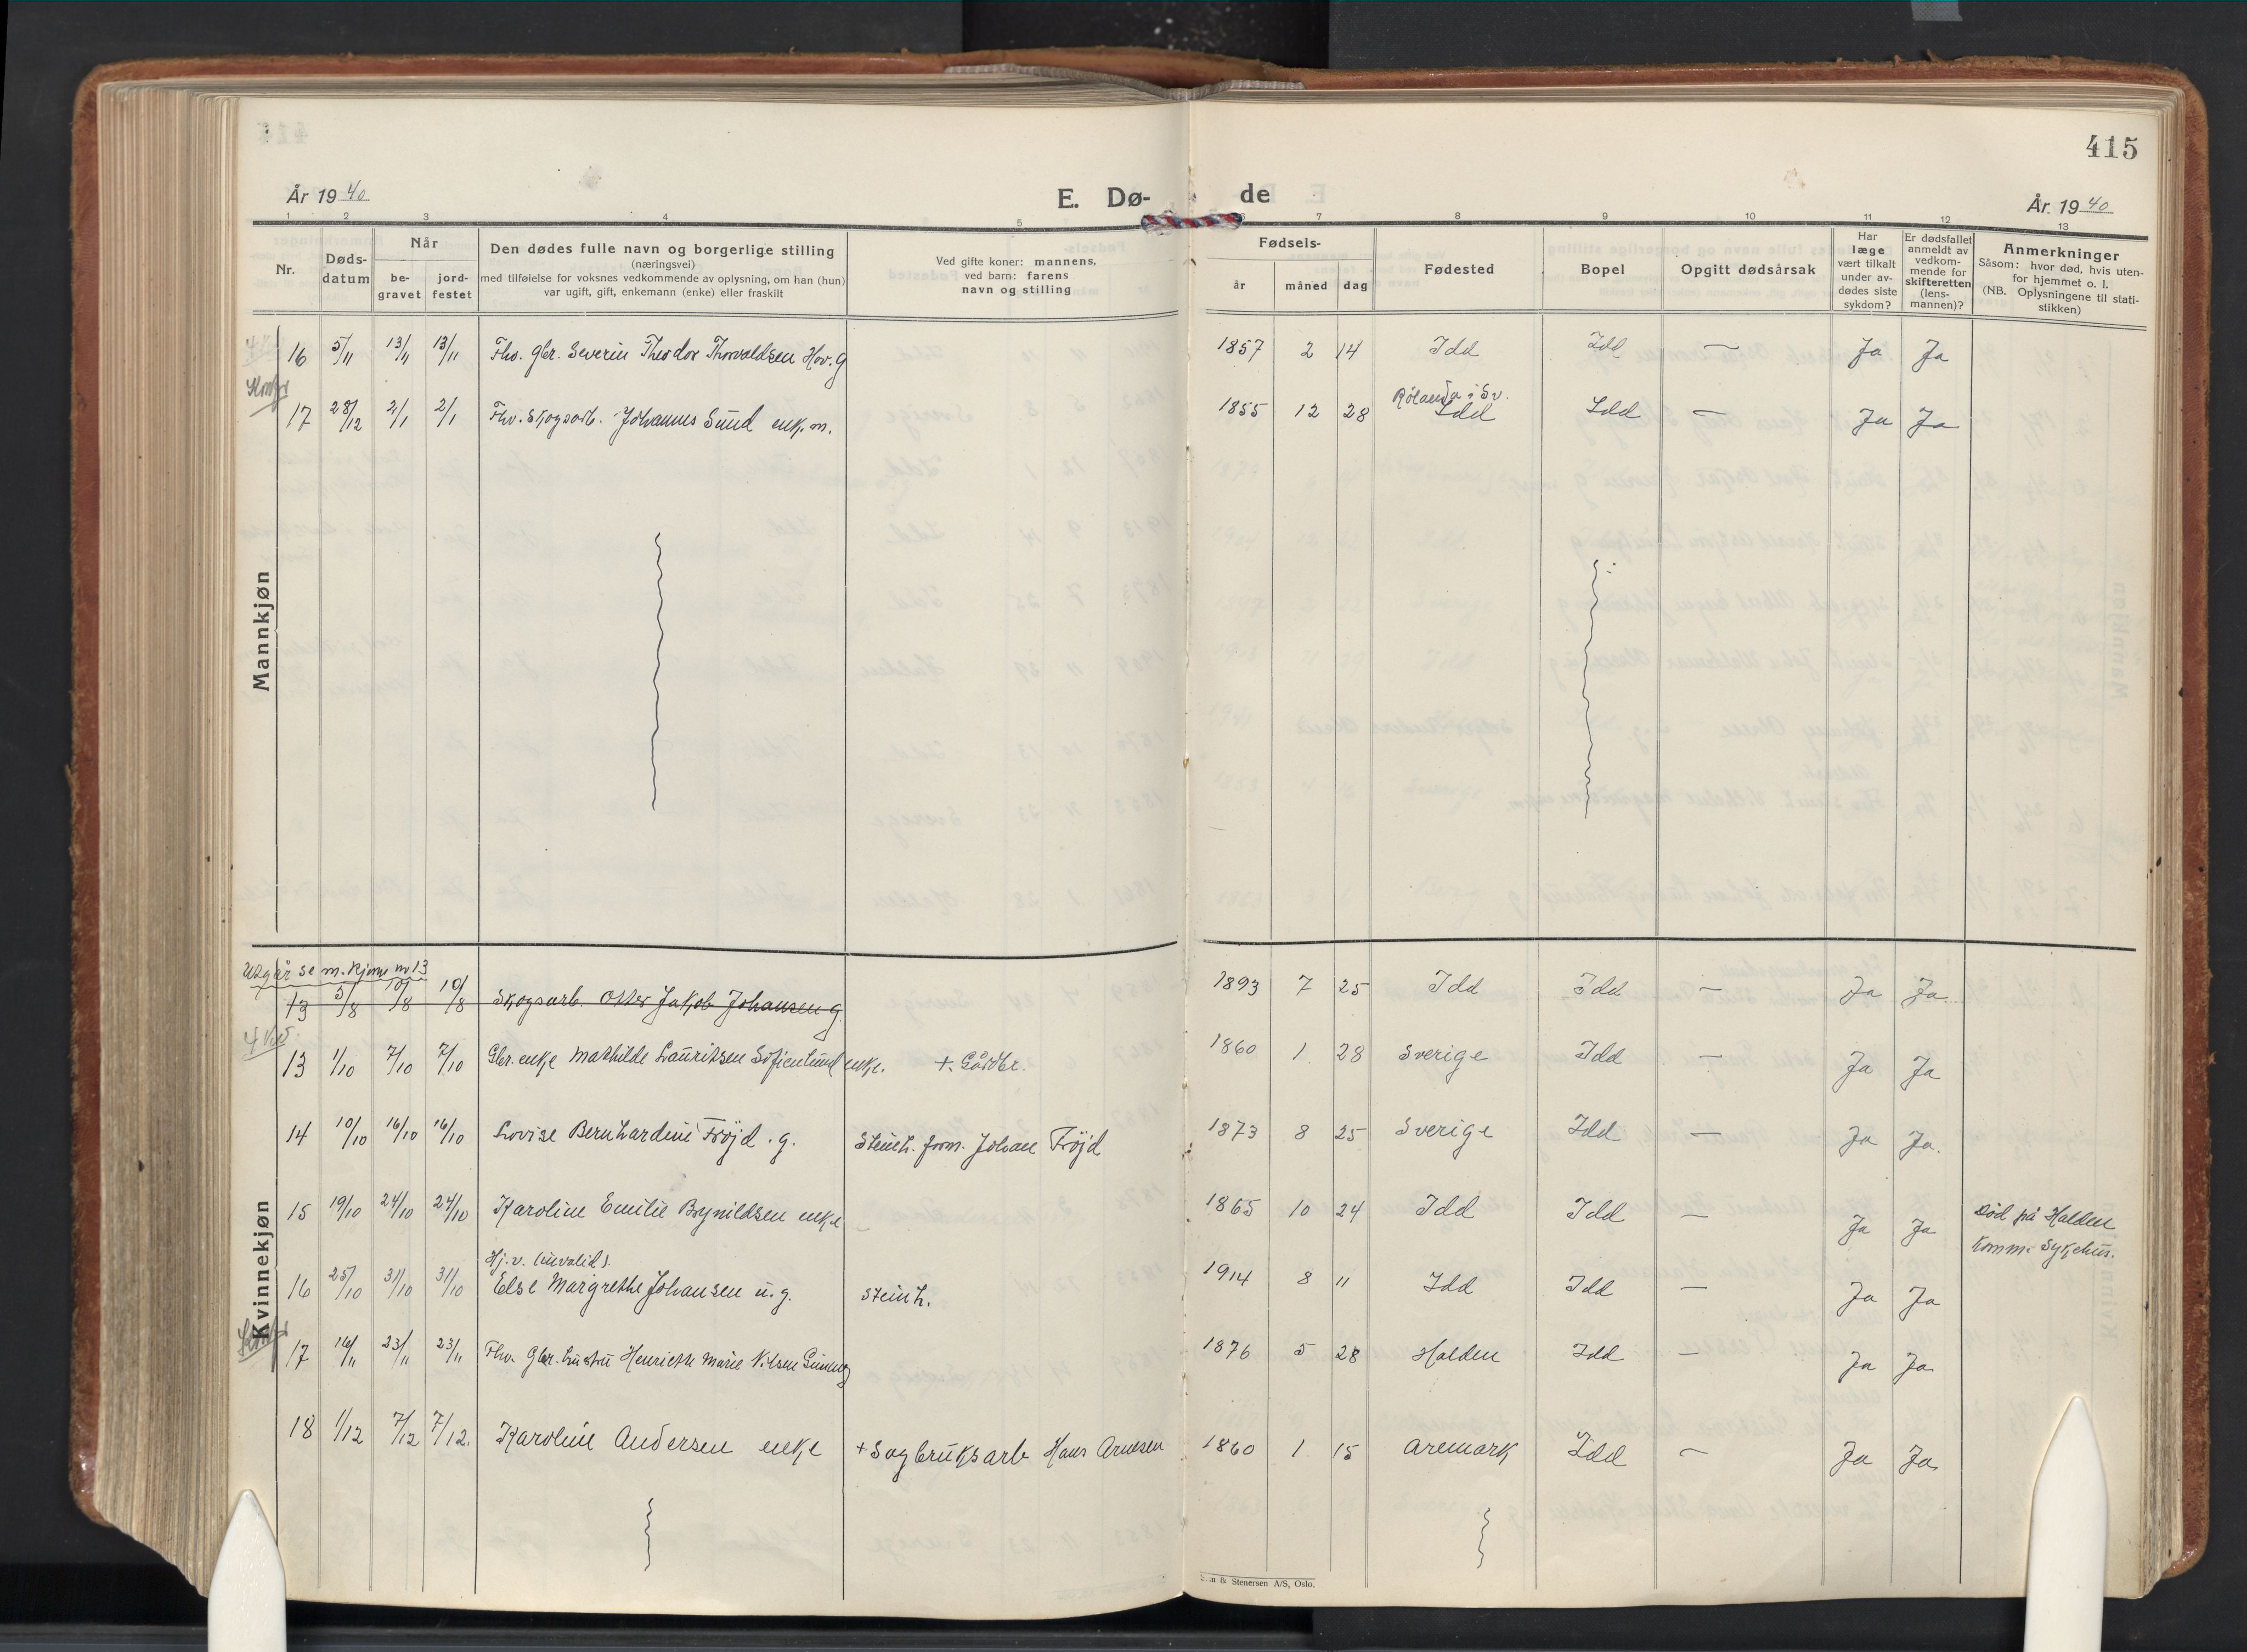 415
År 19 40
E. Dø-
de
År. 19 40
1 2 3 4 5 6 7 8 9 10 11 12 13
Nr.
Døds-
datum
Når
be-
gravet
jord-
festet
Den dødes fulle navn og borgerlige stilling
(næringsvei)
med tilføielse for voksnes vedkommende av oplysning, om han (hun)
var ugift, gift, enkemann (enke) eller fraskilt
Ved gifte koner: mannens,
ved barn: farens
navn og stilling
Fødsels-
år måned dag
Fødested
Bopel
Opgitt dødsårsak
Har
læge
vært tilkalt
under av-
dødes siste
sykdom?
Er dødsfallet
anmeldt av
vedkom-
mende for
skifteretten
(lens-
mannen)?
Anmerkninger
Såsom: hvor død, hvis uten-
for hjemmet o. l.
(NB. Oplysningene til stati-
stikken)
Mannkjøn
16 5/11 13/11 13/11 Fhv. gbr. Severin Theodor Thorvaldsen Hov. g 1857 2 14 Idd Idd — Ja Ja
17 28/12 2/1 2/1 Fhv. Skogsarb. Johannes Sund enkm. 1855 12 28 Rölanda i Sv. Idd Idd — Ja Ja
Kvinnekjøn
Utgår se m.kjønn no 13
13 5/8 10/8 10/8 Skogsarb. Otter Jakob Johansen g. 1893 7 25 Idd Idd — Ja Ja
13 1/10 7/10 7/10 Gbr. enke Mathilde Lauritsen Sofienlund enke. + Gårdbr. 1860 1 28 Sverige Idd — Ja Ja
14 10/10 16/10 16/10 Lovise Bernhardine Fröjd . g. Steinh. form. Johan Fröjd 1873 8 25 Sverige Idd — Ja Ja.
15 19/10 24/10 24/10 Karoline Emilie Brynildsen enke 1865 10 24 Idd Idd — Ja Ja Død på Halden
Komm. Sykehus.
Hj.v. (invalid).
16 25/10 31/10 31/10 Else Margrethe Johansen u.g. Steinh. 1914 8 11 Idd Idd — Ja Ja
17 16/11 23/11 23/11 Fhv. Gbr. hustru Henriette Marie Nilsen 1876 5 28 Halden Idd — Ja Ja
18 1/12 7/12 7/12. Karoline Andersen enke + Sagbruksarb Hans Arnesen 1860 1 15 Aremark Idd — Ja Ja
& Stenersen A/S, Oslo.